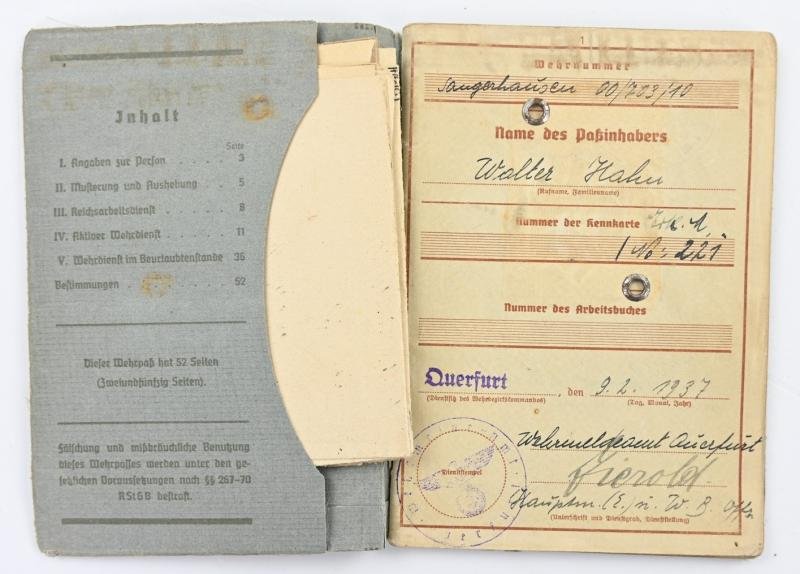 Inhalt
Seite
I. Angaben zur Person . . . . 3
II. Musterung und Aushebung . . 5
III. Reichsarbeitsdienst . . . . 8
IV. Aktiver Wehrdienst . . . . 11
V. Wehrdienst im Beurlaubtenstande 36
Bestimmungen . . . . 52
Dieser Wehrpaß hat 52 Seiten
(Zweiundfünfzig Seiten).
Fälschung und mißbräuchliche Benutzung
dieses Wehrpasses werden unter den ge-
setzlichen Voraussetzungen nach §§ 267-70
RStGB bestraft.
1
Wehrnummer
Sangerhausen 00/703/10
Name des Paßinhabers
Walter Hahn
(Rufname, Familienname)
Nummer der Kennkarte
No: 221
Nummer des Arbeitsbuches
Querfurt, den 9.2. 1937
(Dienstsitz des Wehrbezirkskommandos) (Tag, Monat, Jahr)
Wehrmeldeamt Querfurt
Dienststempel
Hauptm. (E.) u. W. B. Offz
(Unterschrift und Dienstgrad, Dienststellung)